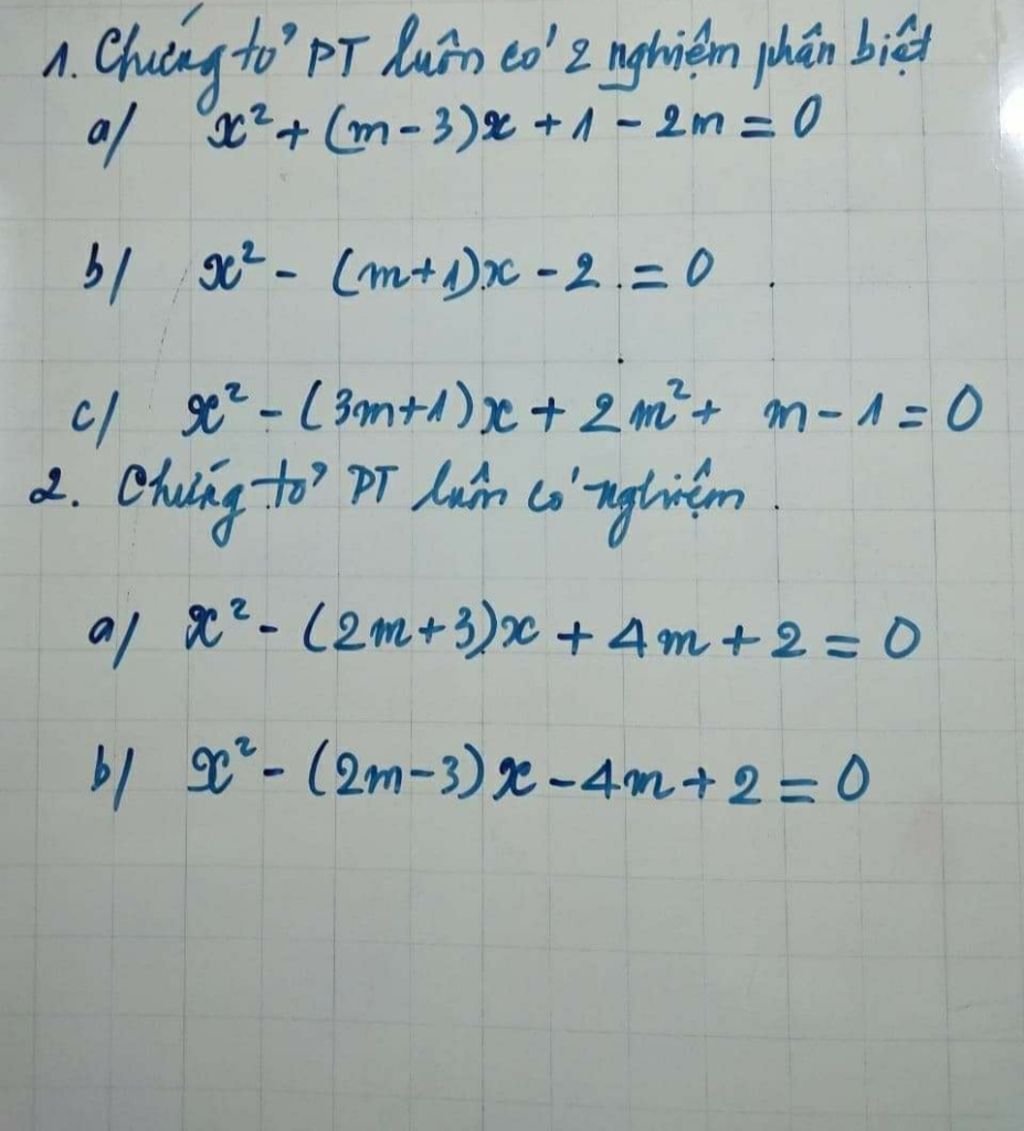 1. Chứng tỏ PT luôn có 2 nghiệm phân biệt
a/ x² + (m - 3)x + 1 - 2m = 0
b/ x² - (m+1)x - 2 = 0
c/ x² - (3m+1)x + 2m² + m - 1 = 0
2. Chứng tỏ PT luôn có nghiệm.
a/ x² - (2m+3)x + 4m + 2 = 0
b/ x² - (2m-3)x - 4m + 2 = 0